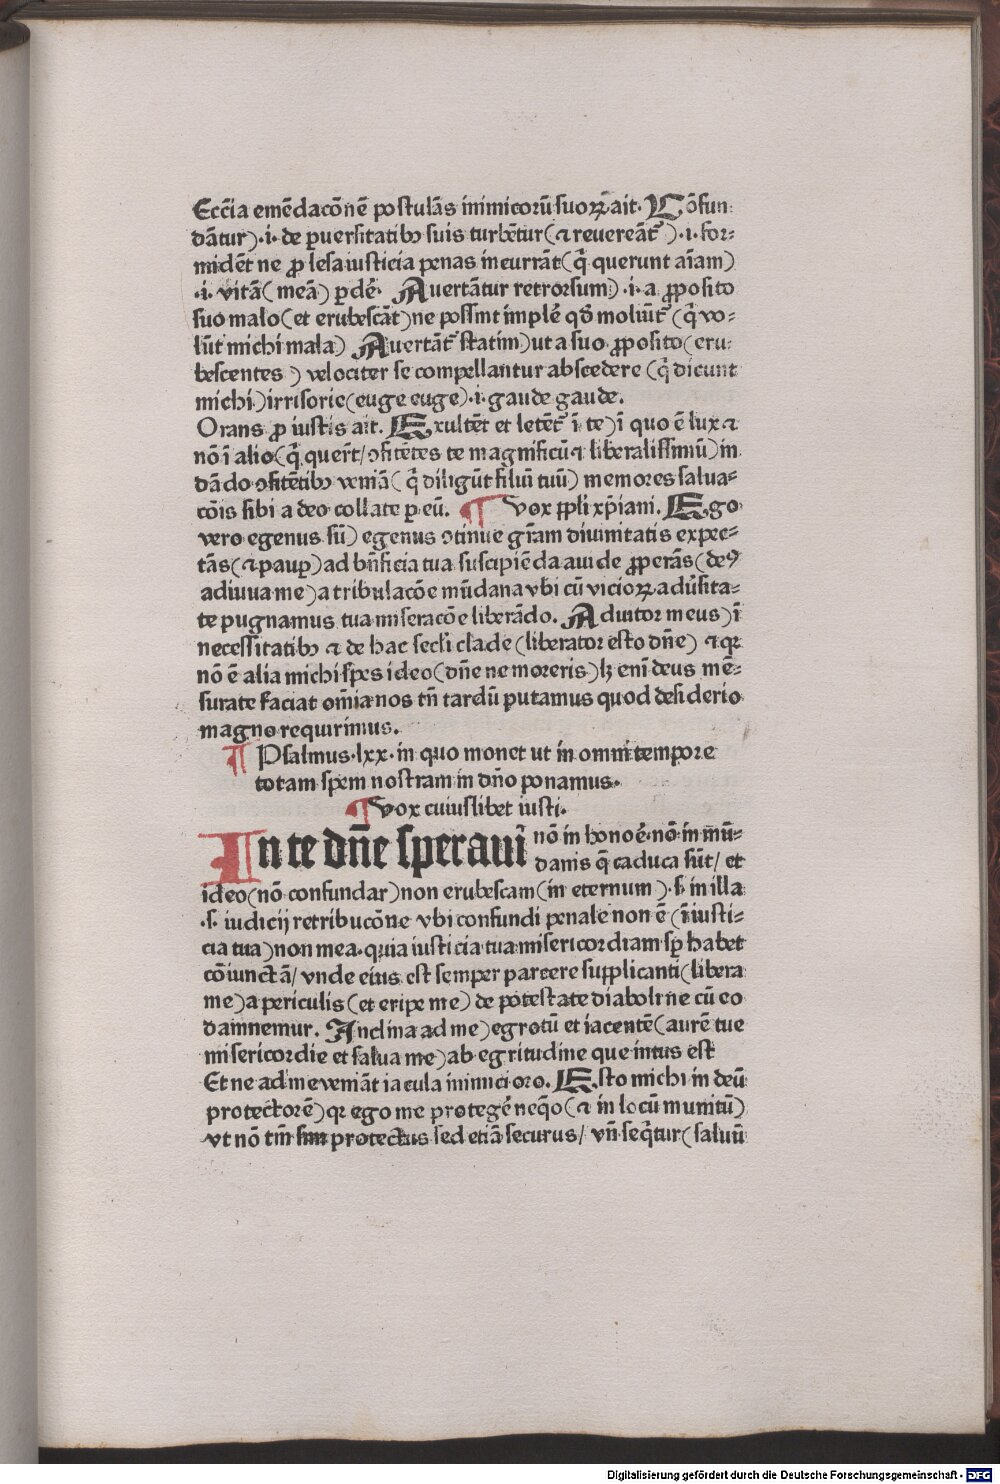 Ecc̄ia emēdacōnē postulās inimicorū suoꝝ ait. Cōfun-
dātur).i. de ꝑuersitatibꝰ suis turbētur(⁊ reuereāt̄ ).i. for-
midēt ne ꝓ lesa iusticia penas incurrāt(q̄ querunt aīam)
.i. vitā(meā) ꝑdē. Auertātur retrorsum).i. a ꝓposito
suo malo(et erubescāt)ne possint implē qd̄ moliūt̄ (q̄ vo-
lūt michi mala) Auertāt̄ statim)ut a suo ꝓposito(eru-
bescentes ) velociter se compellantur abscedere (q̄ dicunt
michi)irrisorie(euge euge).i. gaude gaude.
Orans ꝓ iustis ait. Exultēt et letēt̄ ī te)ī quo ē lux ⁊
nō ī alio(q̄ quer̄t/ ↄfitētes te magnificū ⁊ liberalissimū)in
dādo ↄfitētibꝰ veniā( q̄ diligūt filiū tuū) memores salua-
cōis sibi a deo collate ꝑ eū. ¶ Vox ppli xp̄iani. Ego
vero egenus sū) egenus ↄtinue gr̄am diuinitatis expec-
tās(⁊ pauꝑ)ad bn̄ficia tua suscipiēda auide ꝓperās(deꝰ
adiuua me)a tribulacōe mūdana vbi cū vicioꝝ aduersita-
te pugnamus tua miseracōe liberādo. Adiutor meus)ī
necessitatibꝰ ⁊ de hac secli clade (liberator esto dn̄e) ⁊ qr
nō ē alia michi spes ideo(dn̄e ne moreris)lꝫ enī deus mē-
surate faciat om̄ia nos tn̄ tardū putamus quod desiderio
magno requirimus.
¶ Psalmus.lxx. in quo monet ut in omni tempore
totam spem nostram in dn̄o ponamus.
¶ Vox cuiuslibet iusti.
In te dn̄e speraui nō in honoē. nō in mū-
danis q̄ caduca sūt/ et
ideo(nō confundar)non erubescam(in eternum ).s. in illa
.s. iudicij retribucōne vbi confundi penale non ē (ī iusti-
cia tua)non mea. quia iusticia tua misericordiam sꝑ habet
cōiunctā/ vnde eius est semper parcere supplicanti(libera
me)a periculis(et eripe me) de potestate diaboli ne cū eo
damnemur. Inclina ad me)egrotū et iacentē(aurē tue
misericordie et salua me)ab egritudine que intus est
Et ne ad me veniāt iacula inimici oro. Esto michi in deū
protectorē)qr ego me protegē neq̄o(⁊ in locū munitū)
vt nō tm̄ sim protectus sed etiā securus/ vn̄ seq̄tur(saluū